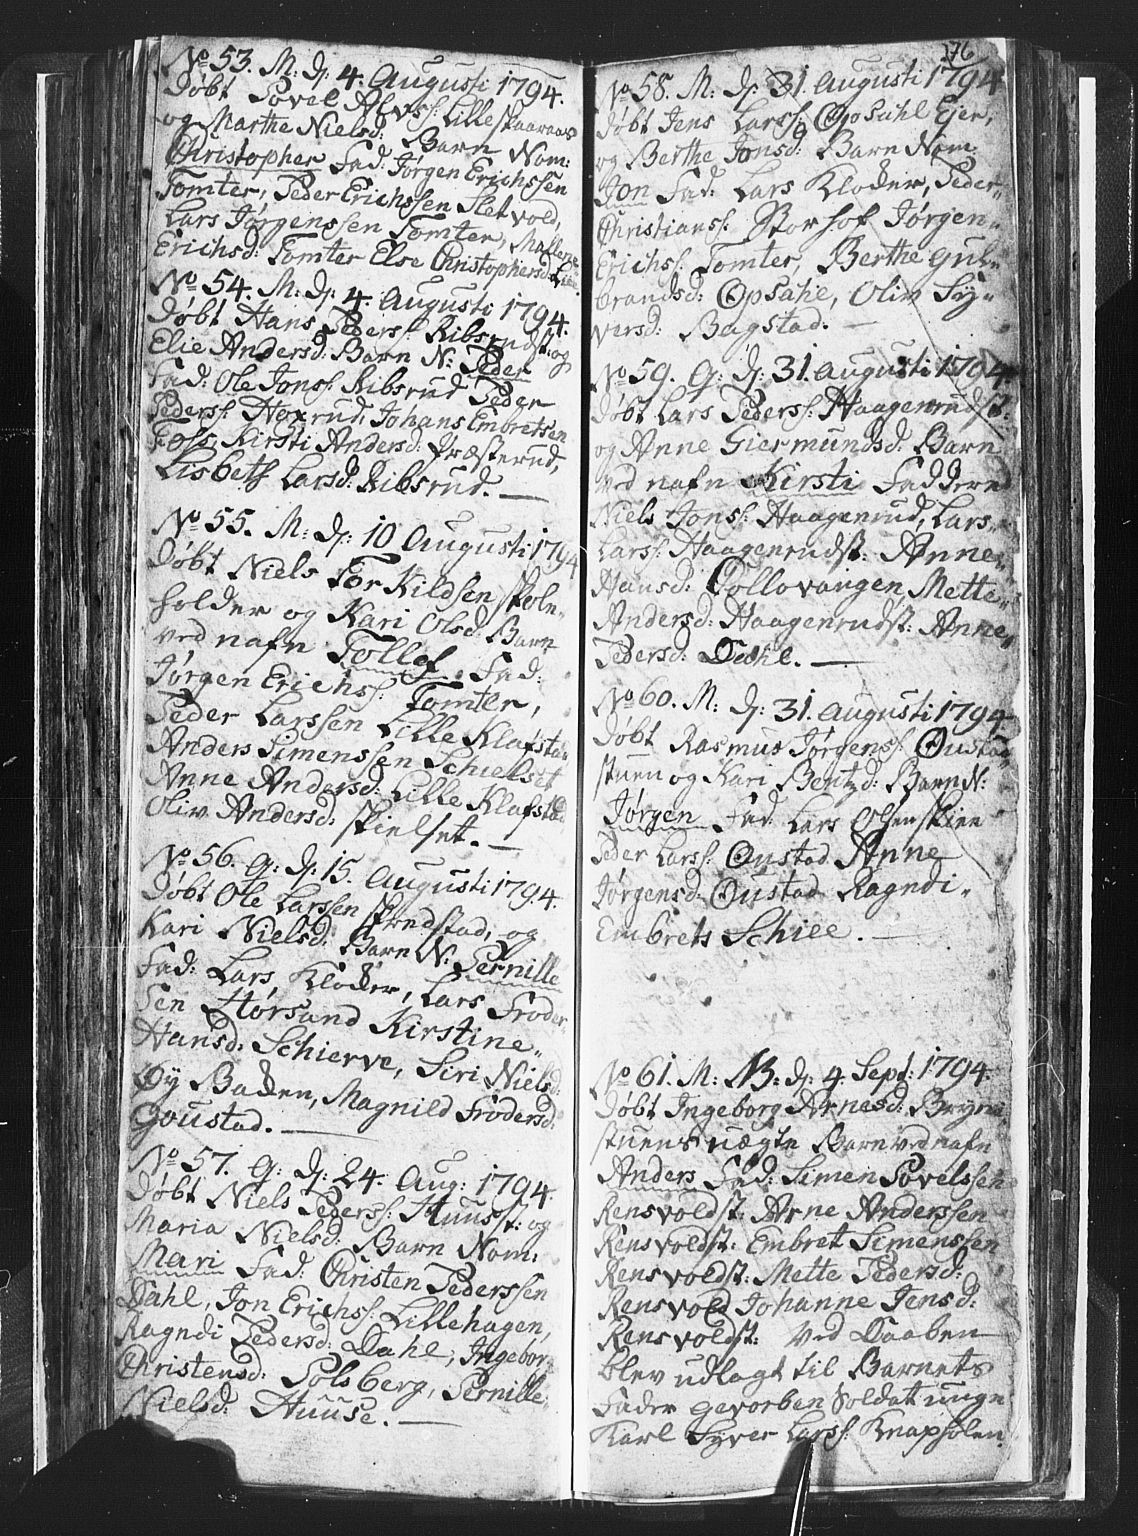 No 53. M. D: 4. Augusti 1794.
døbt Povel Alvss: Lille skaaraas
og Marthe Nielsd: Barn Nom:
Christopher Fad: Jørgen Erichssen
Tomter, Peder Erichssen Sletvold,
Lars Jørgenssen Tomter, Mallene
Erichsd: Tomter Else Christophersd: Lie.
No 54. M. D: 4. Augusti 1794.
døbt Hans Pederss: Ribsrudst: og
Elie Andersd: Barn N: Peder
Fad: Ole Jonss: Ribsrud Peder
Pederss: Hoxrud, Johans Embretsen
Foss, Kirsti Andersd: Præsterud,
Lisbeth Larsd: Ribsrud.
No 55. M: D: 10 Augusti 1794
døbt Niels Torkildsen skole-
holder og Kari Olsd: Barn
ved nafn Tollef Fad:
Jørgen Erichss: Tomter,
Peder Larssen Lille Klafstad
Anders Simenssen Schielset
Anne Andersd: Lille Klafstad
Oliv Andersd: skielset.
No 56. G: D: 15. Augusti 1794.
døbt Ole Larssen og
Kari Nielsd: Barn N: Pernille
Fad: Lars, Klocker, Lars Froder-
sen Hørsand Kirstine
Hansd: Schierve, Siri Nielsd:
Øy Backen, Magnild Frodersd:
Goustad.
No 57. G: D: 24. Aug: 1794.
døbt Niels Pederss: Huusst: og
Maria Nielsd: Barn Nom:
Mari Fad: Christen Pederssen
Dahl, Jon Erichss: Lillehagen,
Ragndi Pedersd: Dahl, Ingebor
Christensd: Solsberg, Pernille
Nielsd: Huuse.
176
No 58. M: D: 31. Augusti 1794
døbt Jens Larss: Opsahl Ejer,
og Berthe Jonsd: Barn Nom:
Jon Fad: Lars Klocker, Peder
Christianss: Storhof Jørgen
Erichss: Tomter, Berthe Gul-
brandsd: Opsahl, Oliv Sy-
versd: Bagstad.
No 59. G: D: 31. Augusti 1794.
døbt Lars Pederss: Haagenrudst:
og Anne Giermundsd: Barn
ved nafn Kirsti Faddere
Niels Jonss: Haagenrud, Lars
Larss: Haagenrudst: Anne
Hansd: Tollovangen Mette
Andersd: Haagenrudst: Anne
Pedersd: Dahl.
No 60. M: D: 31. Augusti 1794
døbt Rasmus Jørgenss: Oustad
stuen og Kari Bentzd: Barn N:
Jørgen Fad: Lars Olsen skiee
Peder Larss: Oustad Anne
Jørgensd: Oustad Ragndi
Embrets Schiee.
No 61. M: NB: D: 4. Sept: 1794.
døbt Ingeborg Arnesd: Bryni
stuens uægte Barn ved nafn
Anders Fad: Simen Povelssen
Rensvoldst: Arne Anderssen
Rensvoldst: Embret Simenssen
Rensvoldst: Mette Pedersd:
Rensvold Johanne Jensd:
Rensvoldst: Ved Daaben
blev udlagt til Barnets
Fader gevorben Soldat unge
Karl Syver Larss: Knapholen